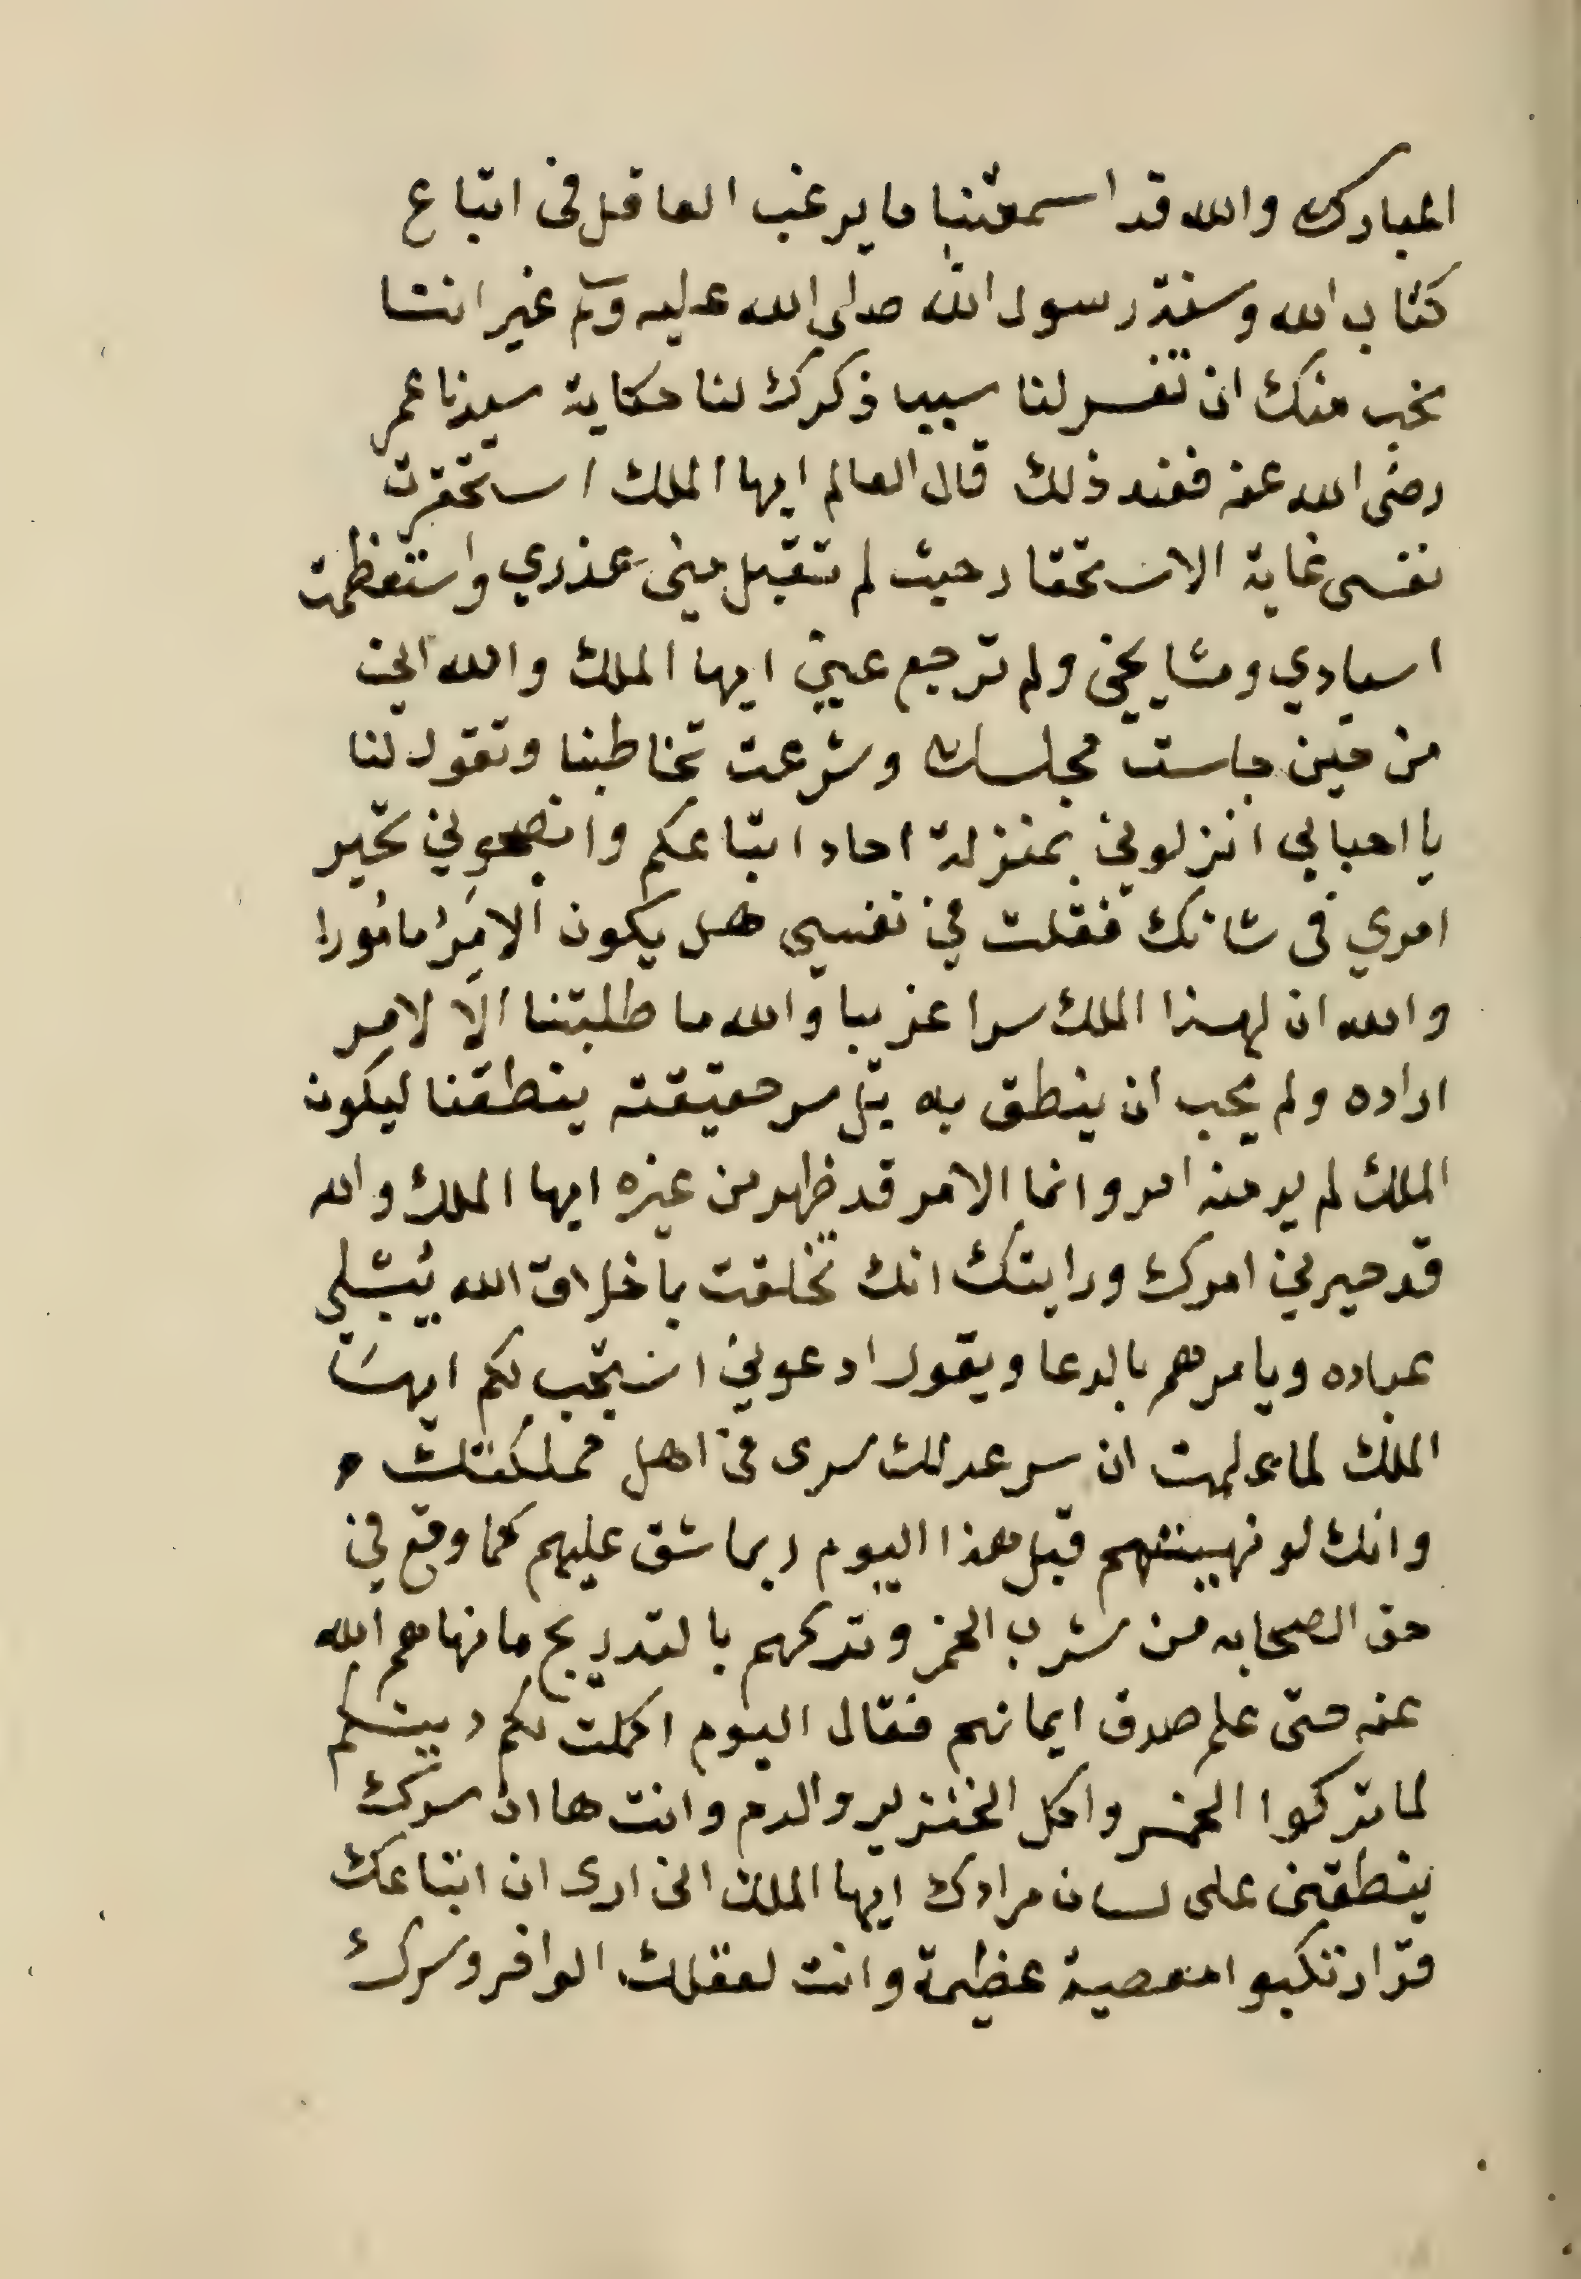 المبارك والله قد اسمعتنا ما يرغب العاقل فى اتباع
كتاب الله وسنة رسول الله صلى الله عليه وسلم غير اننا
نحب منك ان تفسر لنا سبب ذكرك لنا حكاية سيدنا عمر
رضى الله عنه فعند ذلك قال العالم ايها الملك استحقرت
نفسى غاية الاستحقار حيث لم تقبل منى عذري واستعظمت
اسيادي ومشايخى ولم ترجع عيني ايها الملك والله انى
من حين جلست مجلسك وشرعت تخاطبنا وتقول لنا
يا احبابي انزلوني بمنزلة احاد اتباعكم وانصحوني تحير
امري فى شانك فقلت في نفسي هل يكون الامر مامورا
والله ان لهذا الملك سرا غريبا والله ما طلبتنا الا لامر
اراده ولم يحب ان ينطق به بل سر حقيقته ينطقنا ليكون
الملك لم يرمنه امر وانما الامر قد ظهر من غيره ايها الملك والله
قد حيرني امرك ورايتك انك تخلقت باخلاق الله يبتلي
عباده ويامرهم بالدعا ويقول ادعوني استجب لكم ايها
الملك لما علمت ان سر عدلك سرى فى اهل مملكتك و
وانك لو نهيتهم قبل هذا اليوم ربما شق عليهم كما وقع في
حق الصحابه من شرب الخمر وتركهم بالتدريج ما نهاهم الله
عنه حتى علم صدق ايمانهم فقال اليوم اكملت لكم دينكم
لما تركوا الخمر واكل الخنزير والدم وانت ها ان سرك
ينطقنى على لسان مرادك ايها الملك انى ارى ان اتباعك
قد ارتكبوا معصية عظيمة وانت لعقلك الوافر وسرك